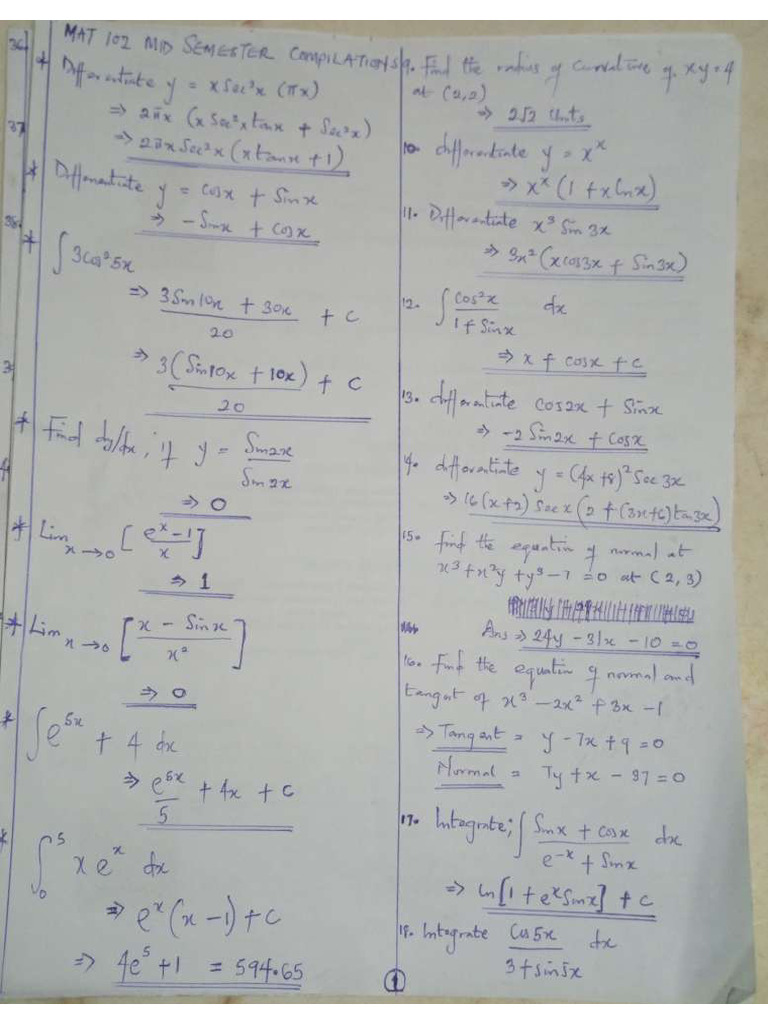 MAT 102 MID SEMESTER COMPILATIONS
36
* Differentiate y = x Sec²x (πx)
⇒ 2πx (x Sec²x tanx + Sec²x)
37
⇒ 2πx Sec²x (x tanx + 1)
* Differentiate y = Cosx + Sinx
⇒ -Sinx + Cosx
* ∫ 3Cos²5x
⇒ 3Sin10x + 30x / 20 + C
⇒ 3(Sin10x + 10x) / 20 + C
* Find dy/dx, if y = Sin2x / Sin2x
⇒ 0
* Lim x→0 [e^x - 1 / x]
⇒ 1
* Lim x→0 [x - Sinx / x²]
⇒ 0
* ∫ e^5x + 4 dx
⇒ e^5x / 5 + 4x + C
* ∫₀⁵ x e^x dx
⇒ e^x (x - 1) + C
⇒ 4e⁵ + 1 = 594.65
9. Find the radius of curvature of xy = 4
at (2,2)
⇒ 2√2 Units
10. differentiate y = x^x
⇒ x^x (1 + x ln x)
11. Differentiate x³ Sin 3x
⇒ 3x² (x cos3x + Sin3x)
12. ∫ Cos²x / 1 + Sinx dx
⇒ x + cosx + C
13. differentiate cos2x + Sinx
⇒ -2 Sin2x + Cosx
differentiate y = (4x + 8)² Sec 3x
⇒ 16(x+2) Sec x (2 + (3x+6) tan 3x)
15. find the equation of normal at
x³ + x²y + y³ - 7 = 0 at (2, 3)
Ans ⇒ 24y - 31x - 10 = 0
16. Find the equation of normal and
tangent of x³ - 2x² + 3x - 1
⇒ Tangent = y - 7x + 9 = 0
Normal = 7y + x - 37 = 0
17. Integrate; ∫ Sinx + cosx / e^-x + Sinx dx
⇒ ln[1 + e^x Sinx] + C
18. Integrate Cos5x / 3 + sin5x dx
1